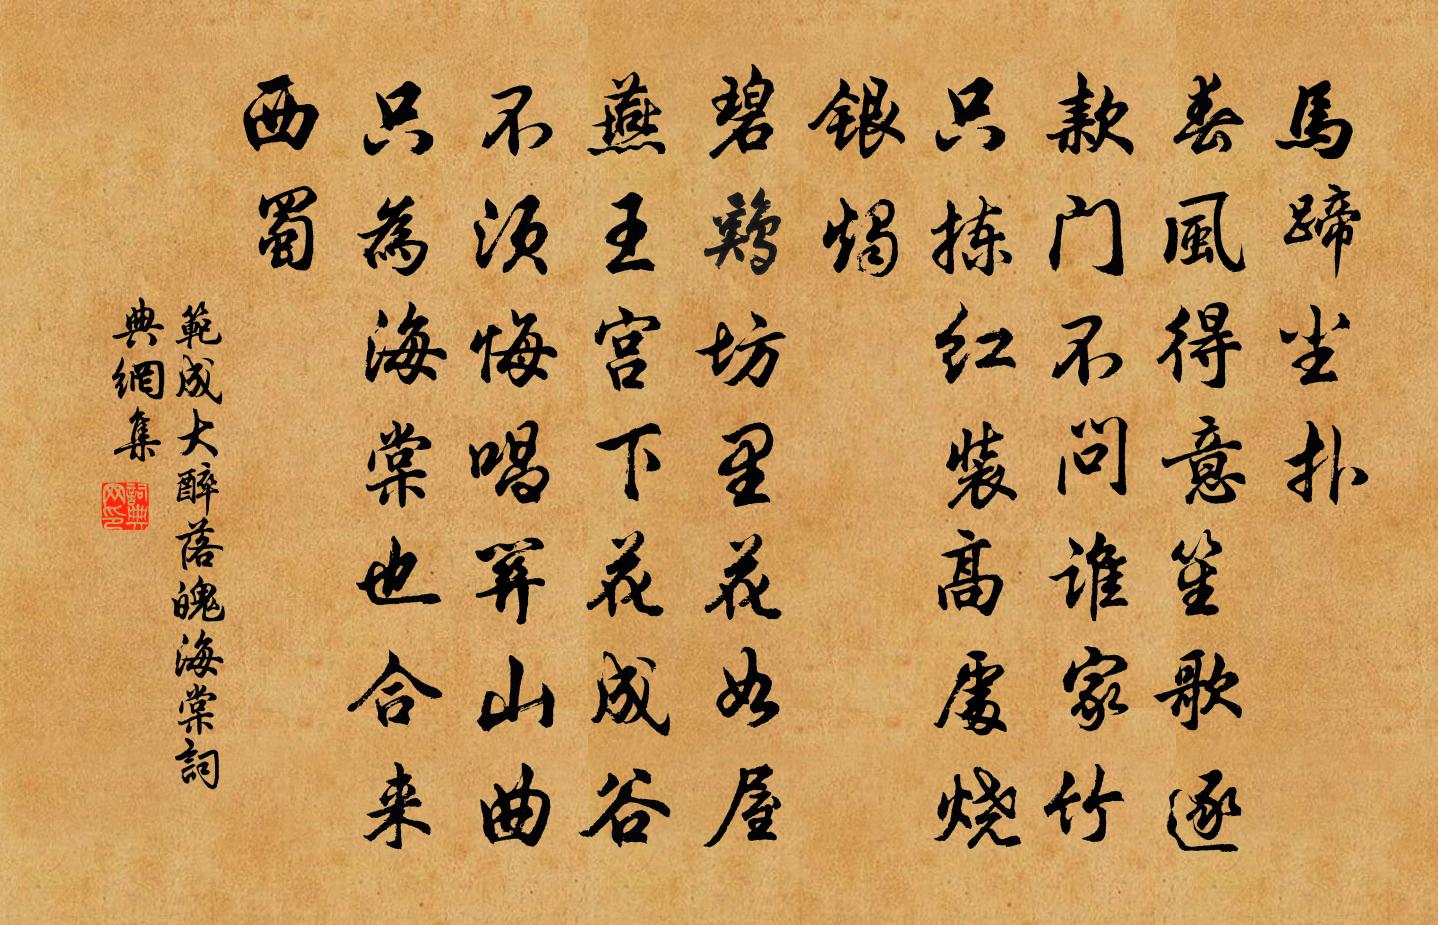 馬蹄尘扑
春風得意笙歌逐
款门不问谁家竹
只拣红装高處烧
銀燭
碧鷄坊里花如屋
燕王宫下花成谷
不须悔唱関山曲
只為海棠也合来
西蜀
範成大醉落魄海棠詞
典網集
詞典
网印